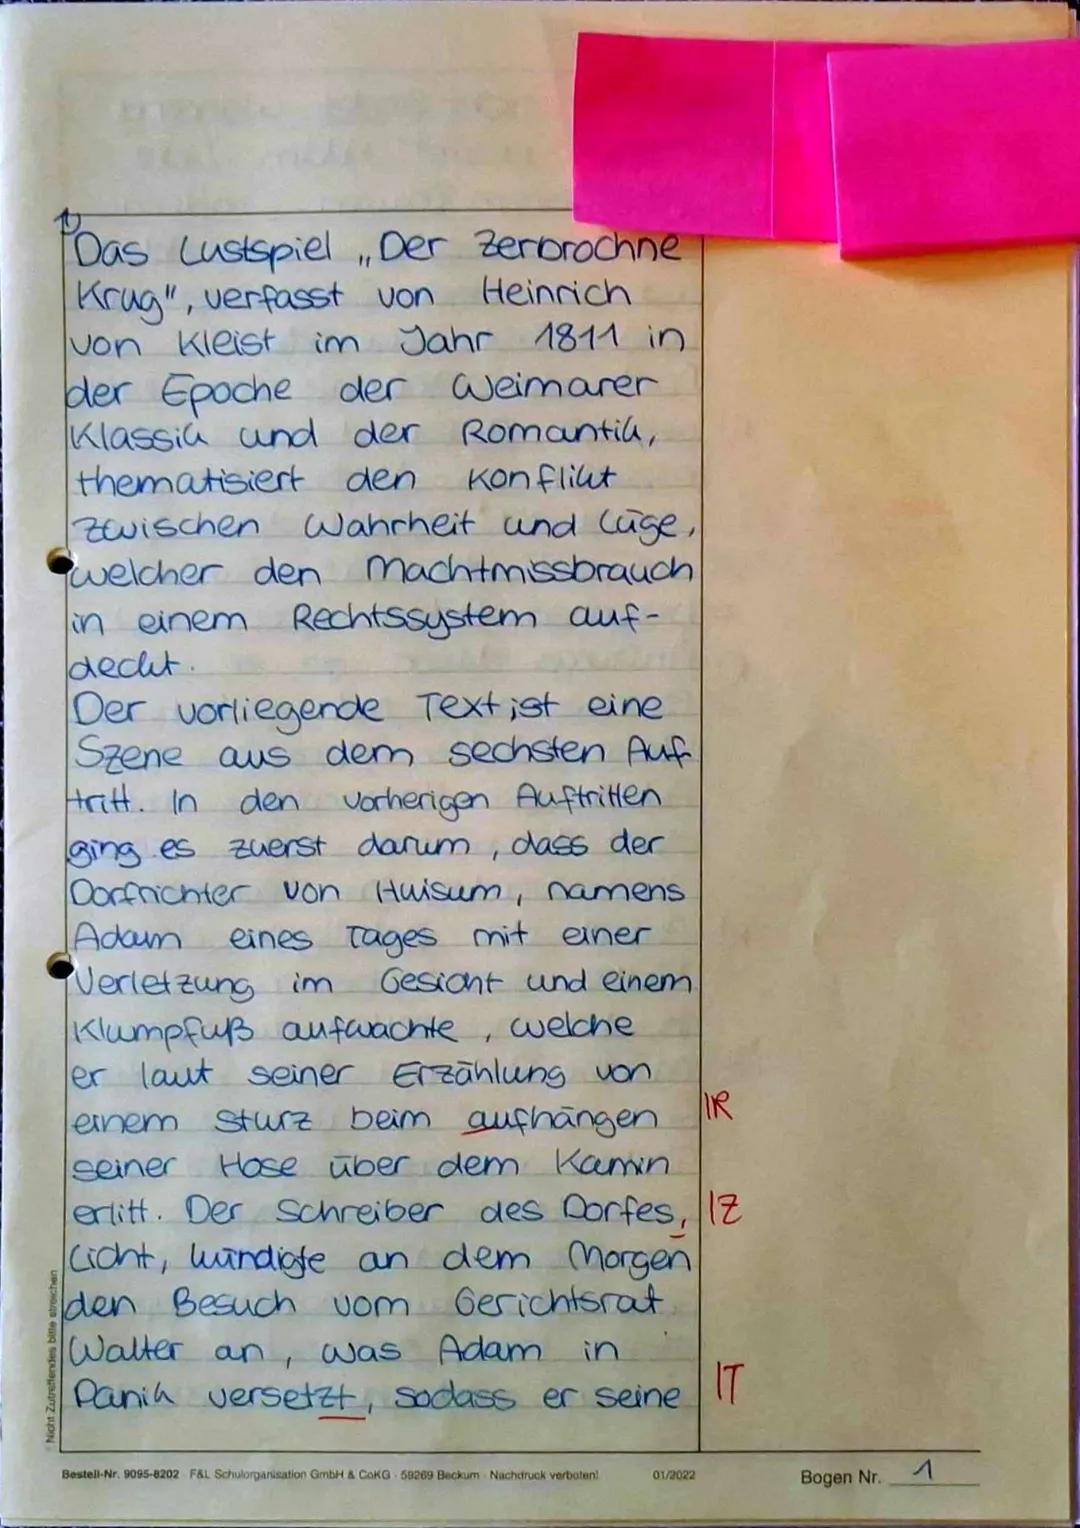 1)
Das Lustspiel „Der Zerbrochne
Krug", verfasst von Heinrich
von Kleist im Jahr 1811 in
der Epoche der Weimarer
Klassik und der Romantik,
thematisiert den Konflikt
zwischen Wahrheit und Lüge,
welcher den Machtmissbrauch
in einem Rechtssystem auf-
deckt.
Der vorliegende Text ist eine
Szene aus dem sechsten Auf-
tritt. In den vorherigen Auftritten
ging es zuerst darum, dass der
Dorfrichter von Huisum, namens
Adam eines Tages mit einer
Verletzung im Gesicht und einem
Klumpfuß aufwachte, welche
er laut seiner Erzählung von
einem Sturz beim aufhängen IR
seiner Hose über dem Kamin
erlitt. Der Schreiber des Dorfes, IZ
Licht, kündigte an dem Morgen
den Besuch vom Gerichtsrat
Walter an, was Adam in
Panik versetzt, sodass er seine IT
Nicht Zutreffendes bitte streichen
Bestell-Nr. 9095-8202 · F&L Schulorganisation GmbH & CoKG · 59269 Beckum · Nachdruck verboten! 01/2022 Bogen Nr. 1